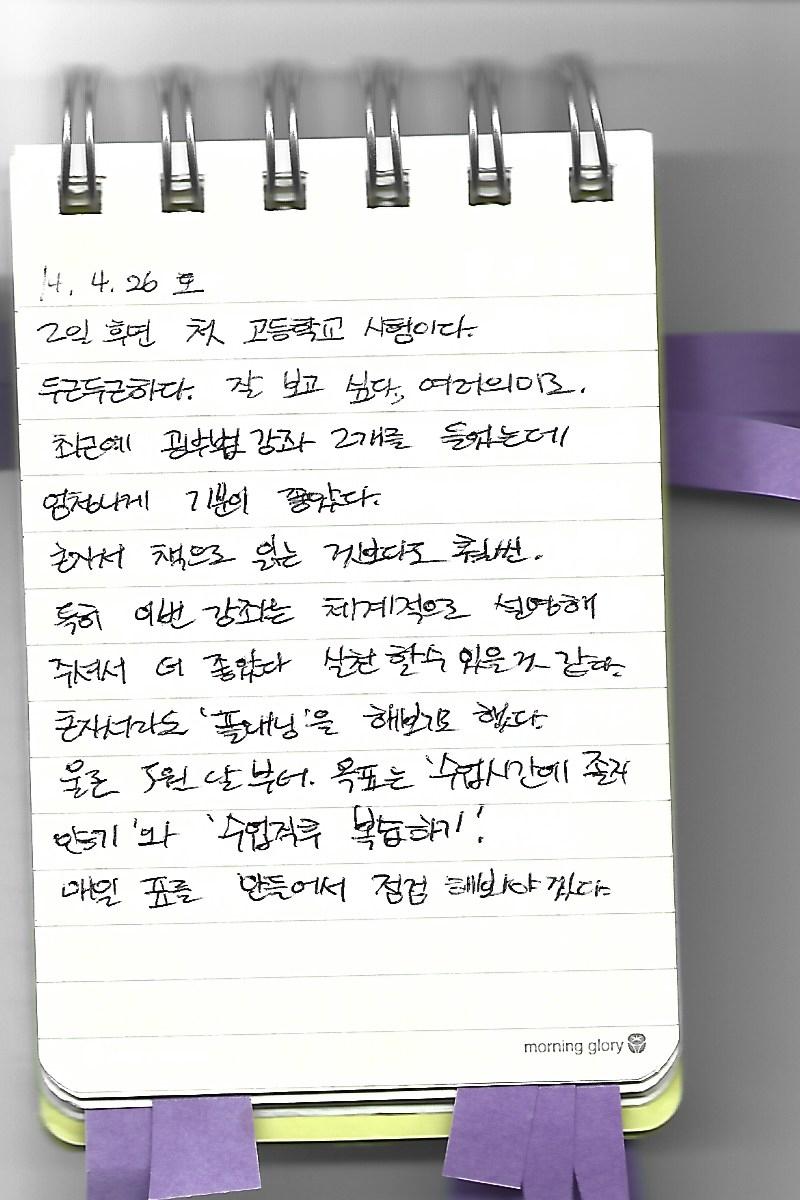 14. 4. 26 토
2일 후면 첫 고등학교 시험이다.
두근두근하다. 잘 보고 싶다, 여러의미로.
최근에 공부법 강좌 2개를 들었는데
엄청나게 기분이 좋았다.
혼자서 책으로 읽는 것보다도 훨씬.
특히 이번 강좌는 체계적으로 설명해
주셔서 더 좋았다 실천 할수 있을것 같다.
혼자서라도 '플래닝'을 해보기로 했다
물론 5월 달 부터. 목표는 '수업시간에 졸지
않기'와 '수업직후 복습하기'!
매일 표를 만들어서 점검 해봐야겠다.
morning glory